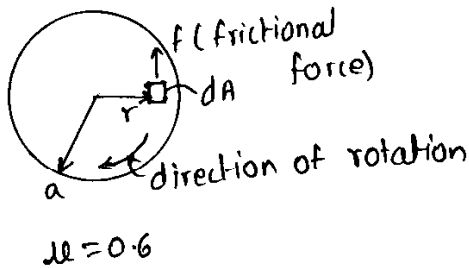 f (frictional
force)
dA
r
direction of rotation
a
μ = 0.6